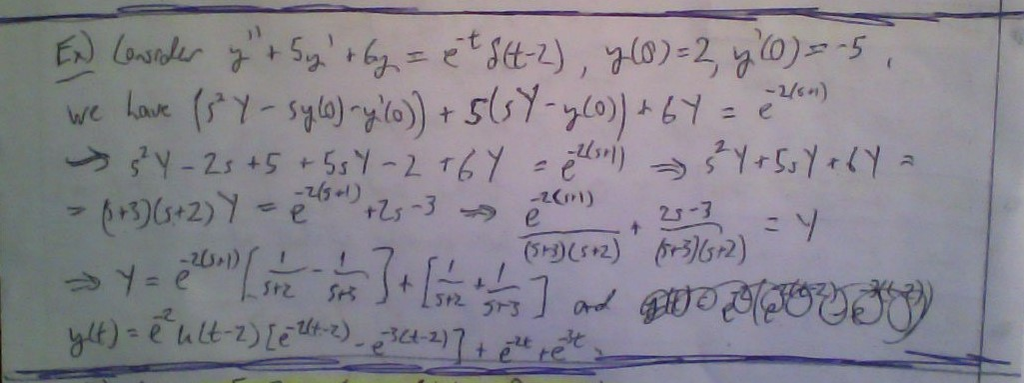 Ex) Consider y'' + 5y' + 6y = e^{-t} δ(t-2), y(0)=2, y'(0)=-5,
we have (s²Y - sy(0) - y'(0)) + 5(sY - y(0)) + 6Y = e^{-2(s+1)}
→ s²Y - 2s + 5 + 5sY - 2 + 6Y = e^{-2(s+1)} ⇒ s²Y + 5sY + 6Y =
= (s+3)(s+2)Y = e^{-2(s+1)} + 2s - 3 ⇒ e^{-2(s+1)}/((s+3)(s+2)) + (2s-3)/((s+3)(s+2)) = Y
⇒ Y = e^{-2(s+1)} [1/(s+2) - 1/(s+3)] + [1/(s+2) + 1/(s+3)] and
y(t) = e^{-2} u(t-2) [e^{-2(t-2)} - e^{-3(t-2)}] + e^{-2t} + e^{-3t}.